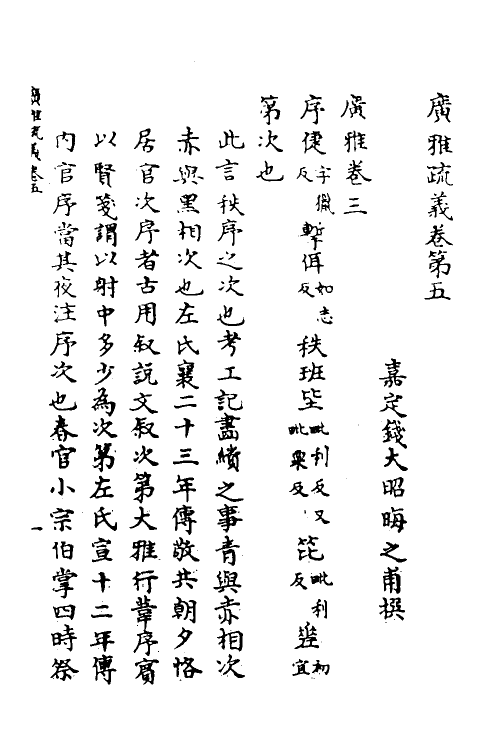 廣雅疏義卷第五
嘉定錢大昭晦之甫撰
廣雅卷三
序倢子獵反㨖佴如志反秩班坒毗利反又毗栗反笓毗利反差初宜
第次也
此言秩序之次也考工記畫繢之事青與赤相次
赤與黑相次也左氏襄二十三年傳敬共朝夕恪
居官次序者古用叙説文叙次第大雅行葦序賓
以賢箋謂以射中多少為次第左氏宣十二年傳
内官序當其夜注序次也春官小宗伯掌四時祭
廣雅疏義卷五
一